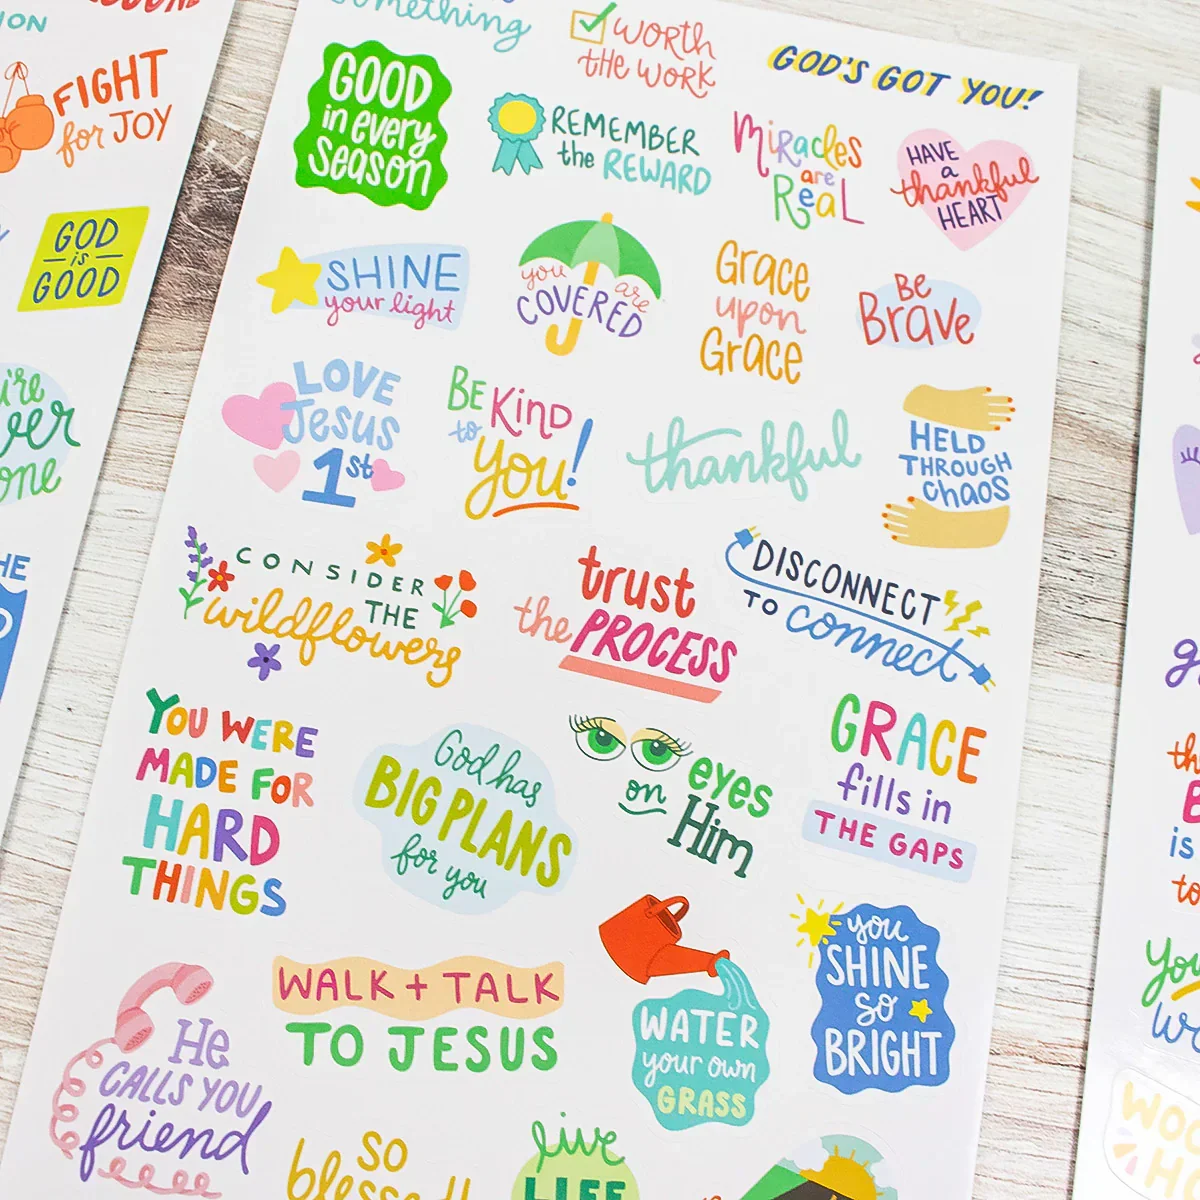 ION
FIGHT
for JOY
GOD
is
GOOD
something
WORTH
THE WORK
GOD'S GOT YOU!
GOOD
in every
SEASON
REMEMBER
the REWARD
MIRACLES
are
REAL
HAVE
a
thankful
HEART
SHINE
your light
you are
COVERED
Grace
upon
Grace
BE
BRAVE
LOVE
Jesus
1st
BE KIND
to
you!
thankful
HELD
THROUGH
CHAOS
CONSIDER
THE
wildflowers
trust
the PROCESS
DISCONNECT
TO connect
YOU WERE
MADE FOR
HARD
THINGS
God has
BIG PLANS
for you
eyes
on Him
GRACE
fills in
THE GAPS
WALK + TALK
TO JESUS
WATER
your own
GRASS
you
SHINE
SO
BRIGHT
He
CALLS YOU
friend
SO
blessed
live
LIFE
is
to